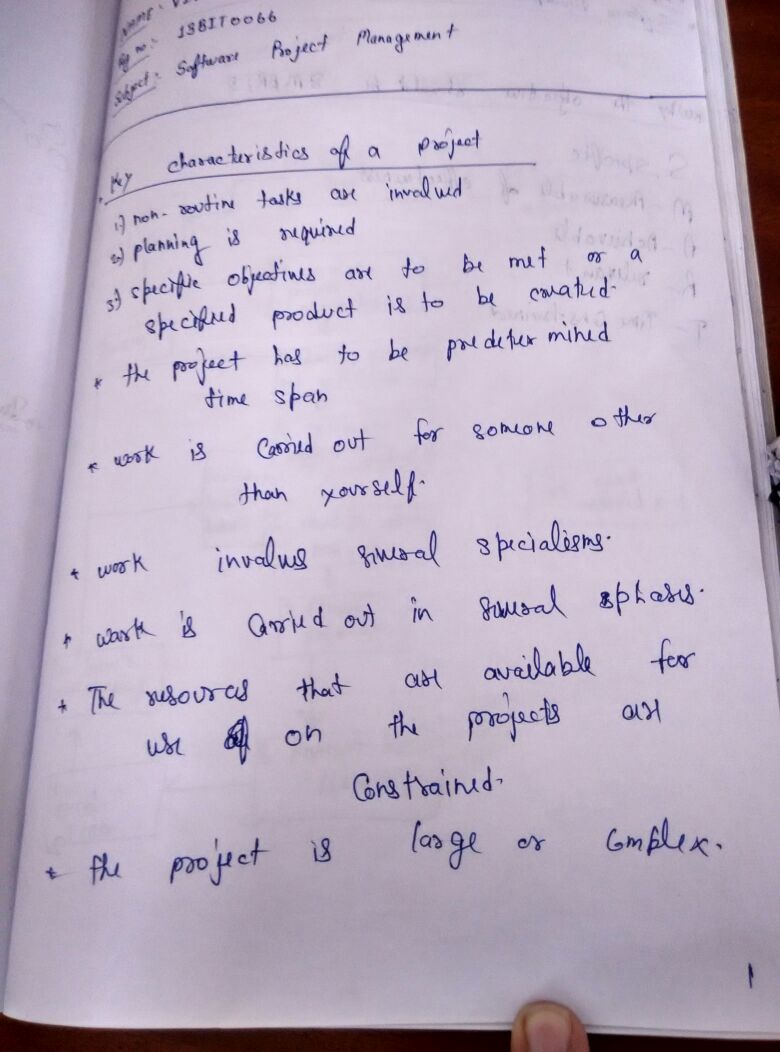 NAME :
Rg no: 13BIT0066
Subject: Software Project Management
Key characteristics of a project
1) non-routine tasks are involved
2) planning is required
3) specific objectives are to be met or a
specified product is to be created.
* the project has to be predetermined
time span
* work is carried out for someone other
than yourself.
* work involves several specialisms.
* work is carried out in several phases.
* The resources that are available for
use on the projects are
constrained.
* the project is large or complex.
1